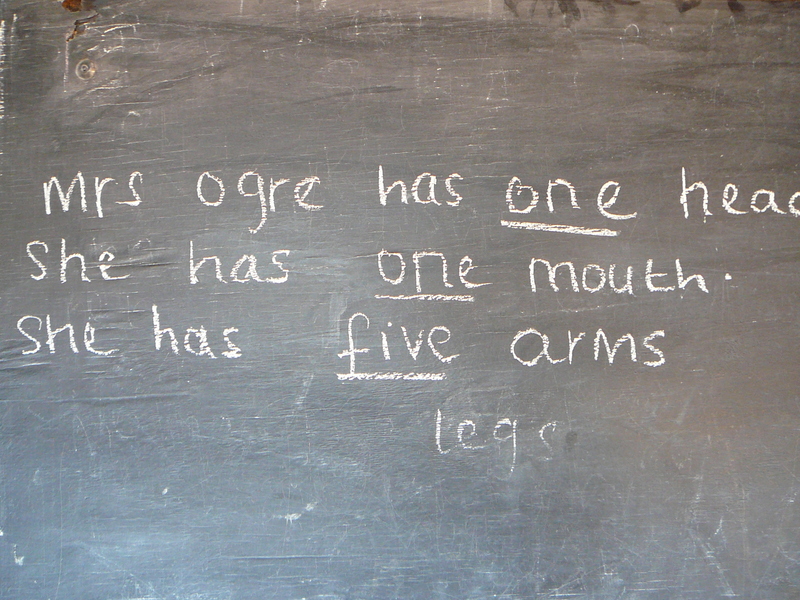 Mrs Ogre has one head
She has one mouth.
She has five arms
legs